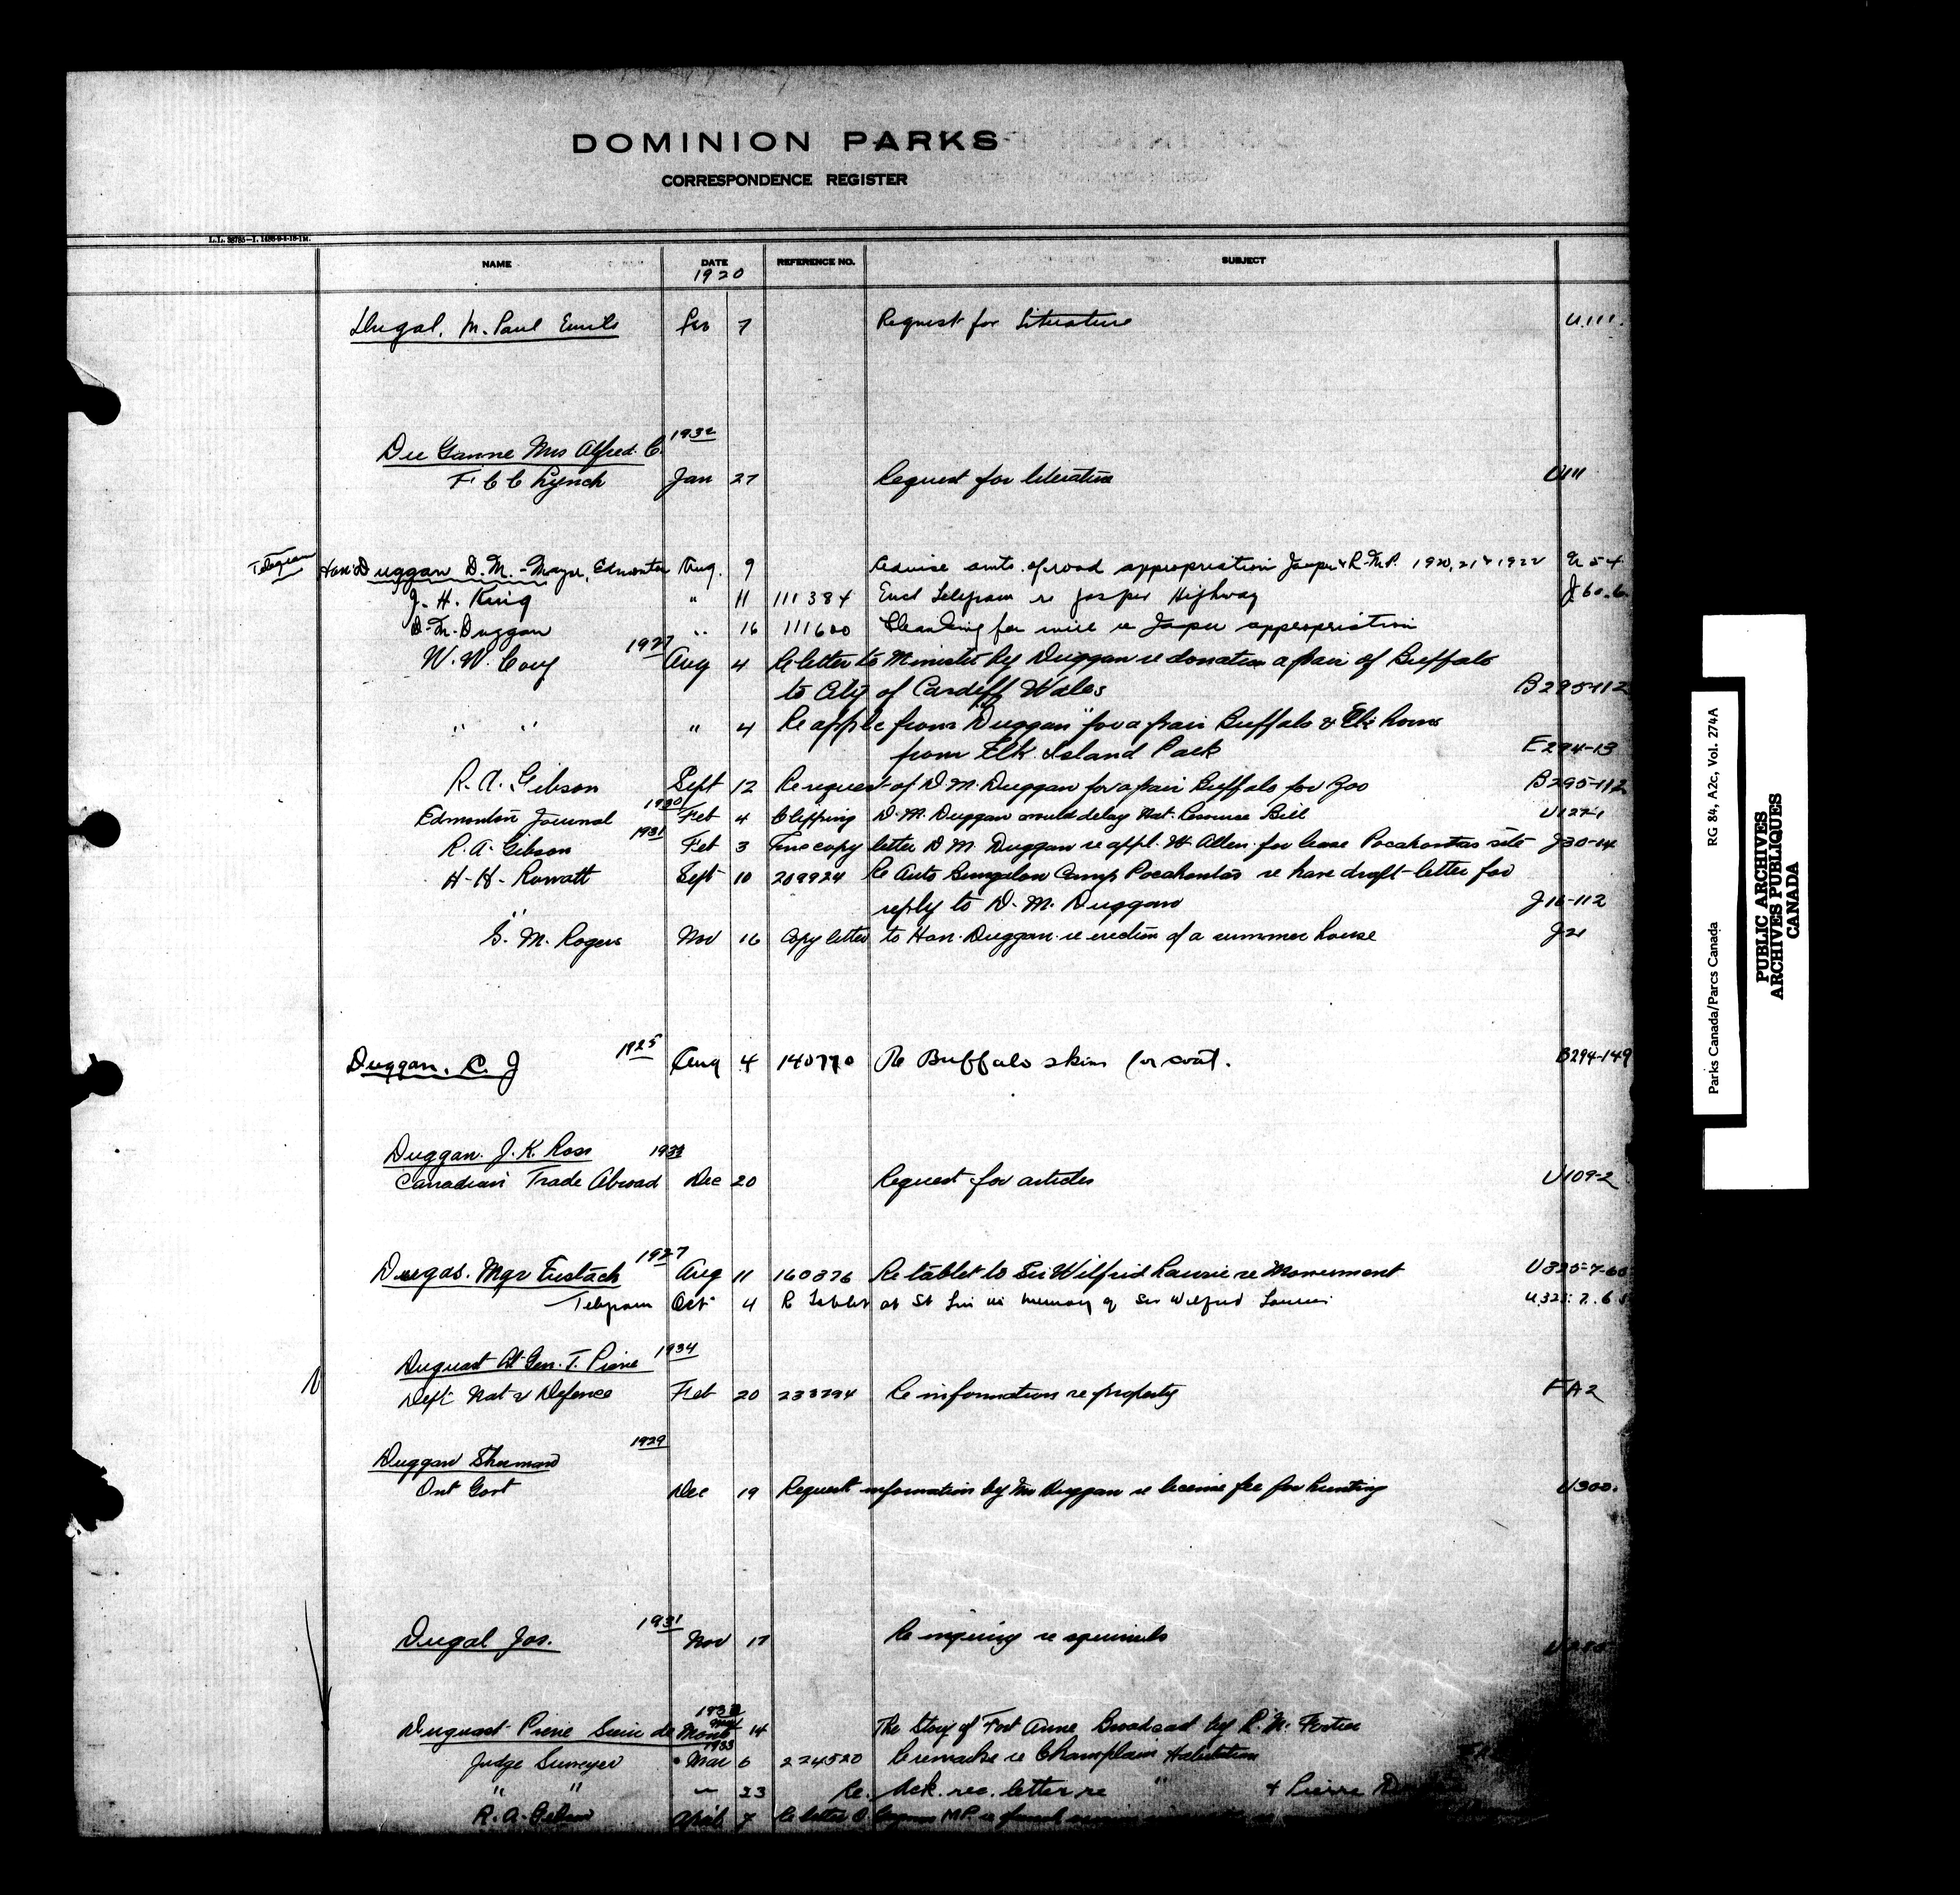 DOMINION PARKS
CORRESPONDENCE REGISTER
L.L. 38785—I. 1486-9-4-18-1M.
NAME DATE REFERENCE NO. SUBJECT
1920
Dugal, M. Paul Emile Feb 7 Request for Literature U.111.
1932
Du Ganne Mrs Alfred C.
F. C C Lynch Jan 27 Request for literature U111
Telegram Hon. Duggan D.M. - Mayor, Edmonton Aug. 9 Advise amts. of road appropriation Jasper & R.M.P. 1920, 21 & 1922 U 54
J. H. King " 11 111384 Encl Telegram re Jasper Highway J60.6
D. M. Duggan " 16 111600 Thanking for wire re Jasper appropriation
W. W. Cory 1927 Aug 4 Re letter to Minister by Duggan re donation a pair of Buffalo
to City of Cardiff Wales B295-112
" " " 4 Re apple from "Duggan" for a pair Buffalo & Elk horns
from Elk Island Park E294-13
R. A. Gibson Sept 12 Re request of D. M. Duggan for a pair Buffalo for Zoo B295-112
Edmonton Journal 1930 Feb 4 Clipping D. M. Duggan would delay Nat. Resource Bill U127-1
R. A. Gibson 1931 Feb 3 True copy letter D M. Duggan re appl. W. Allen for lease Pocahontas site J30-14
H. H. Rowatt Sept 10 209924 Re Auto Bungalow Camp Pocahontas re have draft letter for
reply to D. M. Duggan J16-112
S. M. Rogers Nov 16 Copy letter to Hon. Duggan re erection of a summer house J21
Duggan, C. J 1925 Aug 4 140770 Re Buffalo skins for coat. B294-149
Duggan. J. K. Ross 1933
Canadian Trade Abroad Dec 20 Request for articles U109-2
1927
Dugas. Mgr Eustach Aug 11 160376 Re tablet to Sir Wilfrid Laurie re Monument U325-7-65
Telegram Oct 4 R Tablet at St Lin in memory of Sir Wilfred Laurier U.325.7.65
Duguast Lt Gen. T. Pierre 1934
Dept Nat'l Defence Feb 20 233294 Re information re property FA2
1929
Duggan Sherman
Ont Govt Dec 19 Request information by Mr Duggan re license fee for hunting U300.
Dugal Jos. 1931 Nov 17 Re inquiry re squirrels
Duguast Pierre Sieur de Monts 14 The Story of Fort Anne Broadcast by L. M. Fortier
1933
Judge Savary Mar 6 224520 Re remarks re Champlain Habitation
" " 23 Re. Ack. rec. letter re " & Pierre
R. A. Gibson April 7 Re letter
Parks Canada/Parcs Canada RG 84, A2c, Vol. 274A
PUBLIC ARCHIVES
ARCHIVES PUBLIQUES
CANADA